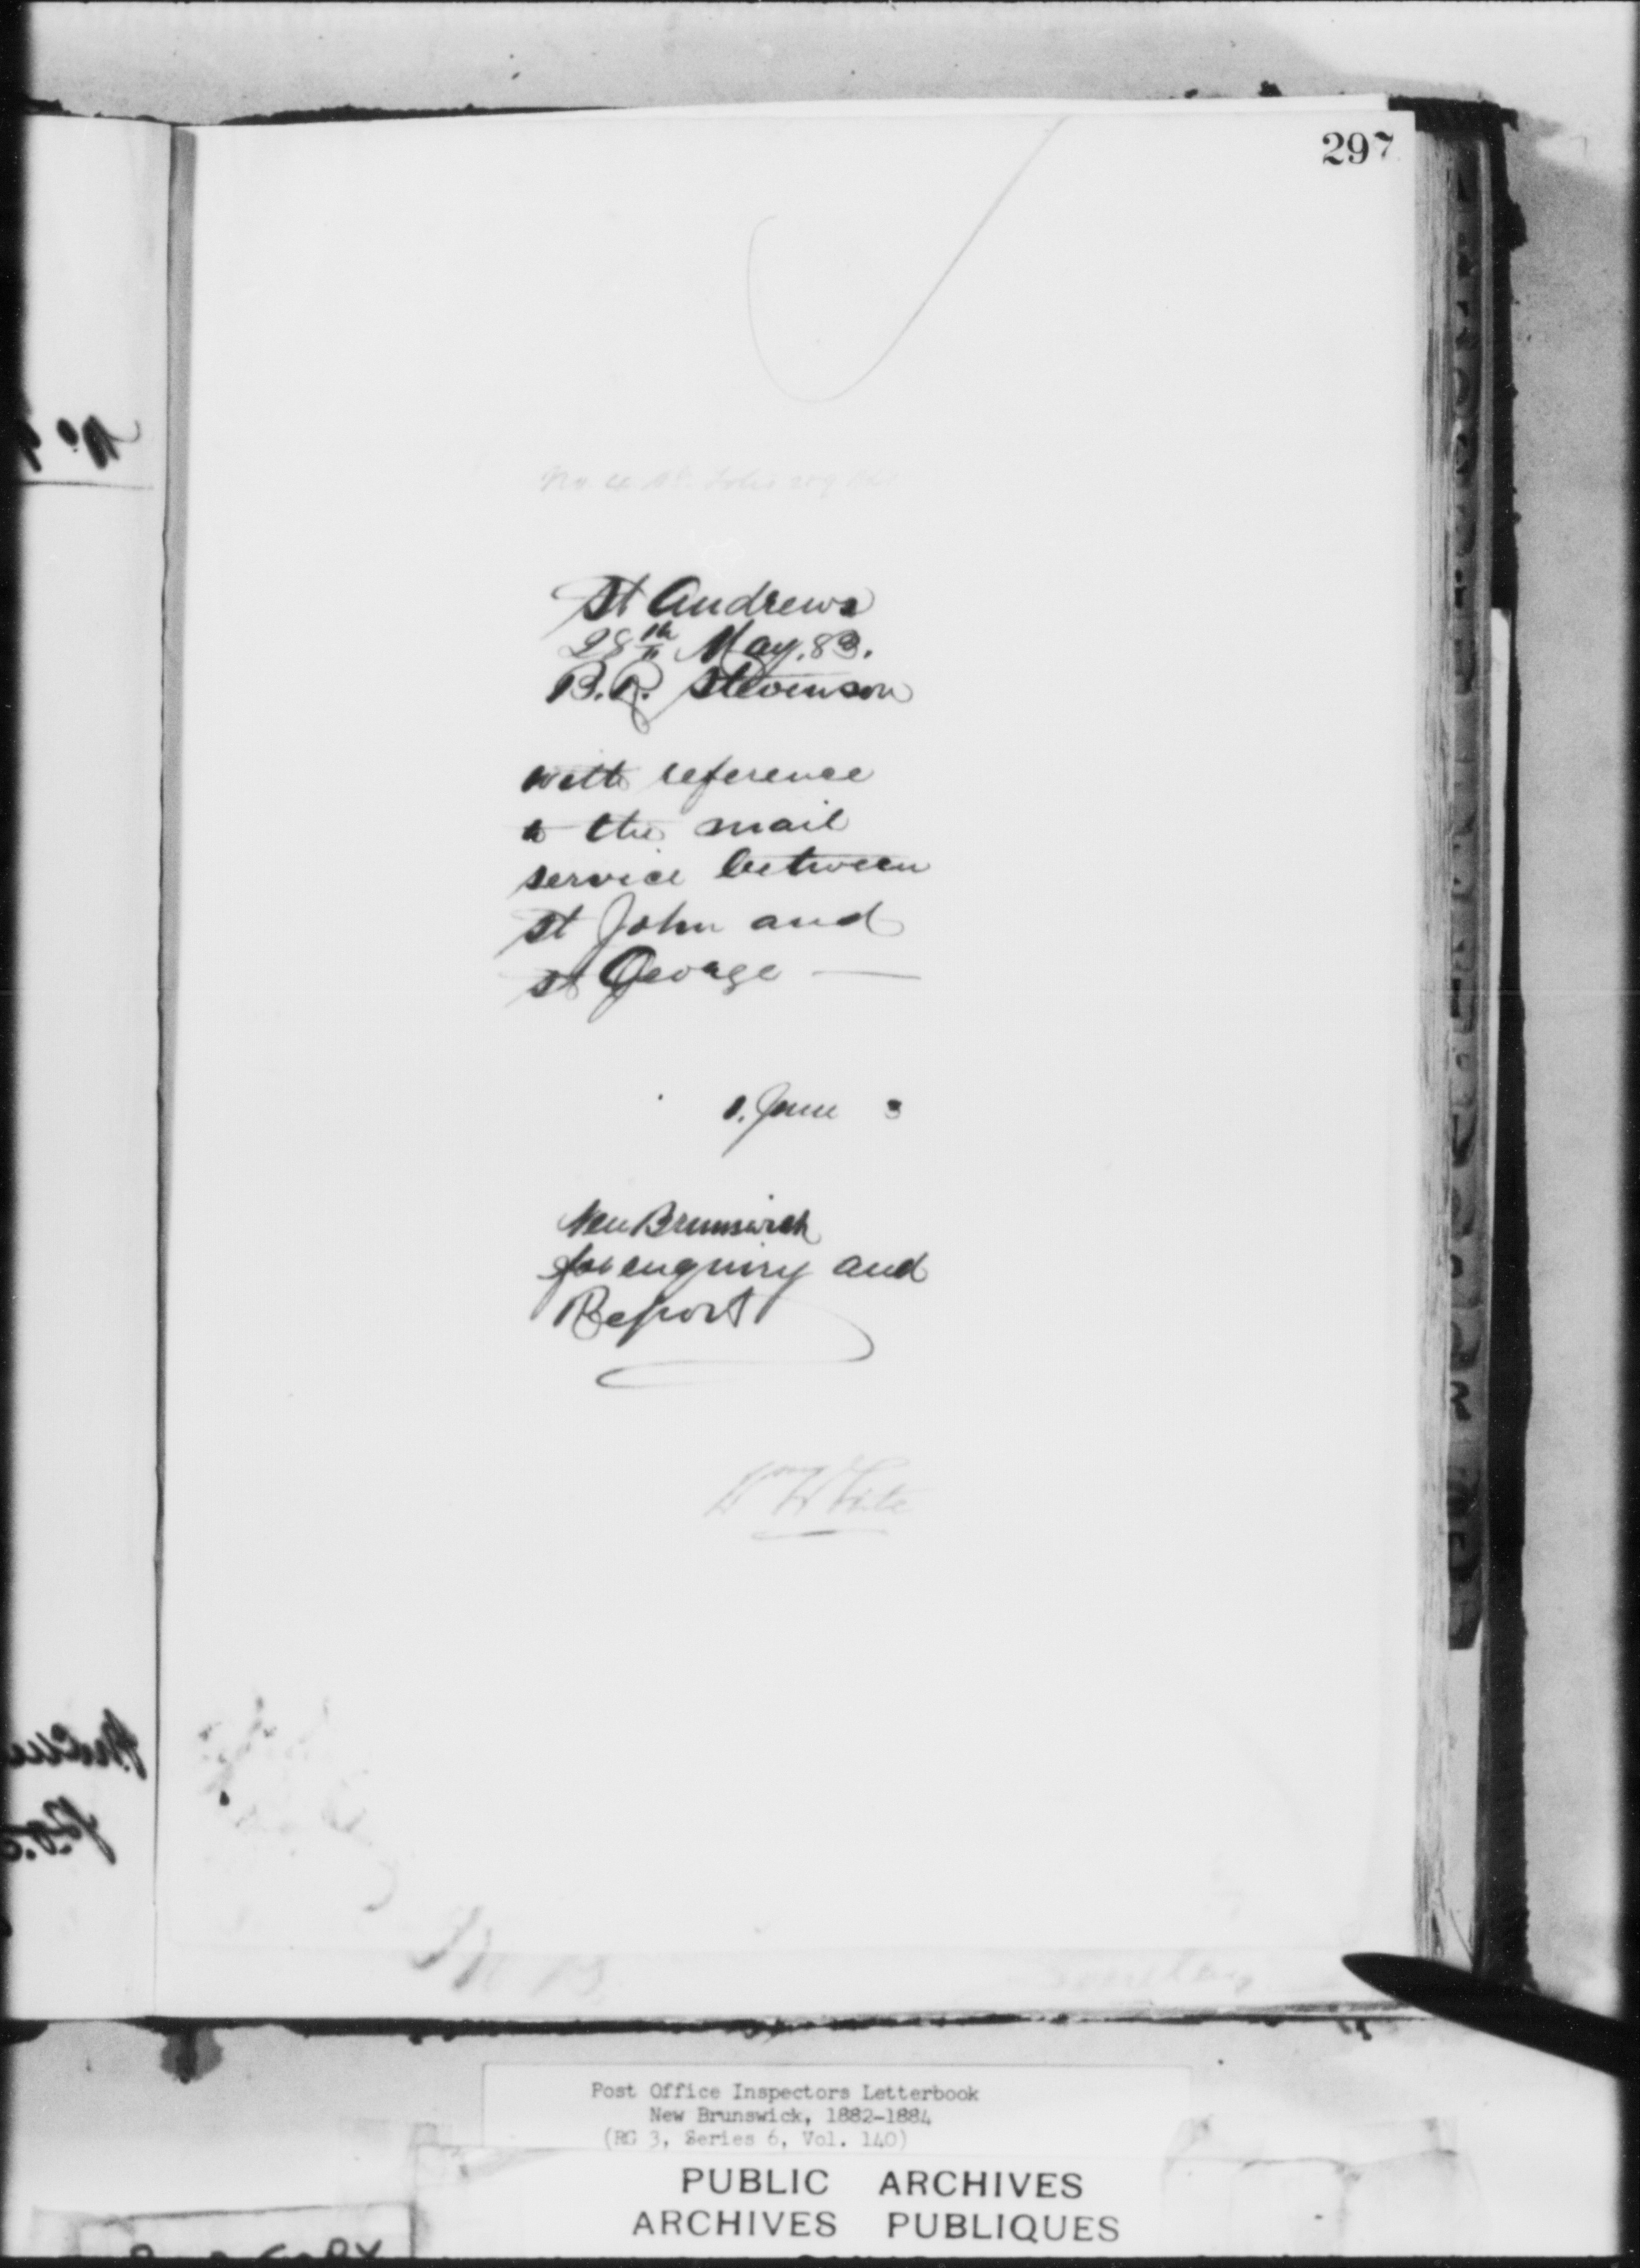 297
St Andrews
28th May. 83.
B.R. Stevenson
with reference
to the mail
service between
St John and
St George —
1. June 3
New Brunswick
for enquiry and
Report
Wm White
Post Office Inspectors Letterbook
New Brunswick, 1882-1884
(RG 3, Series 6, Vol. 140)
PUBLIC ARCHIVES
ARCHIVES PUBLIQUES